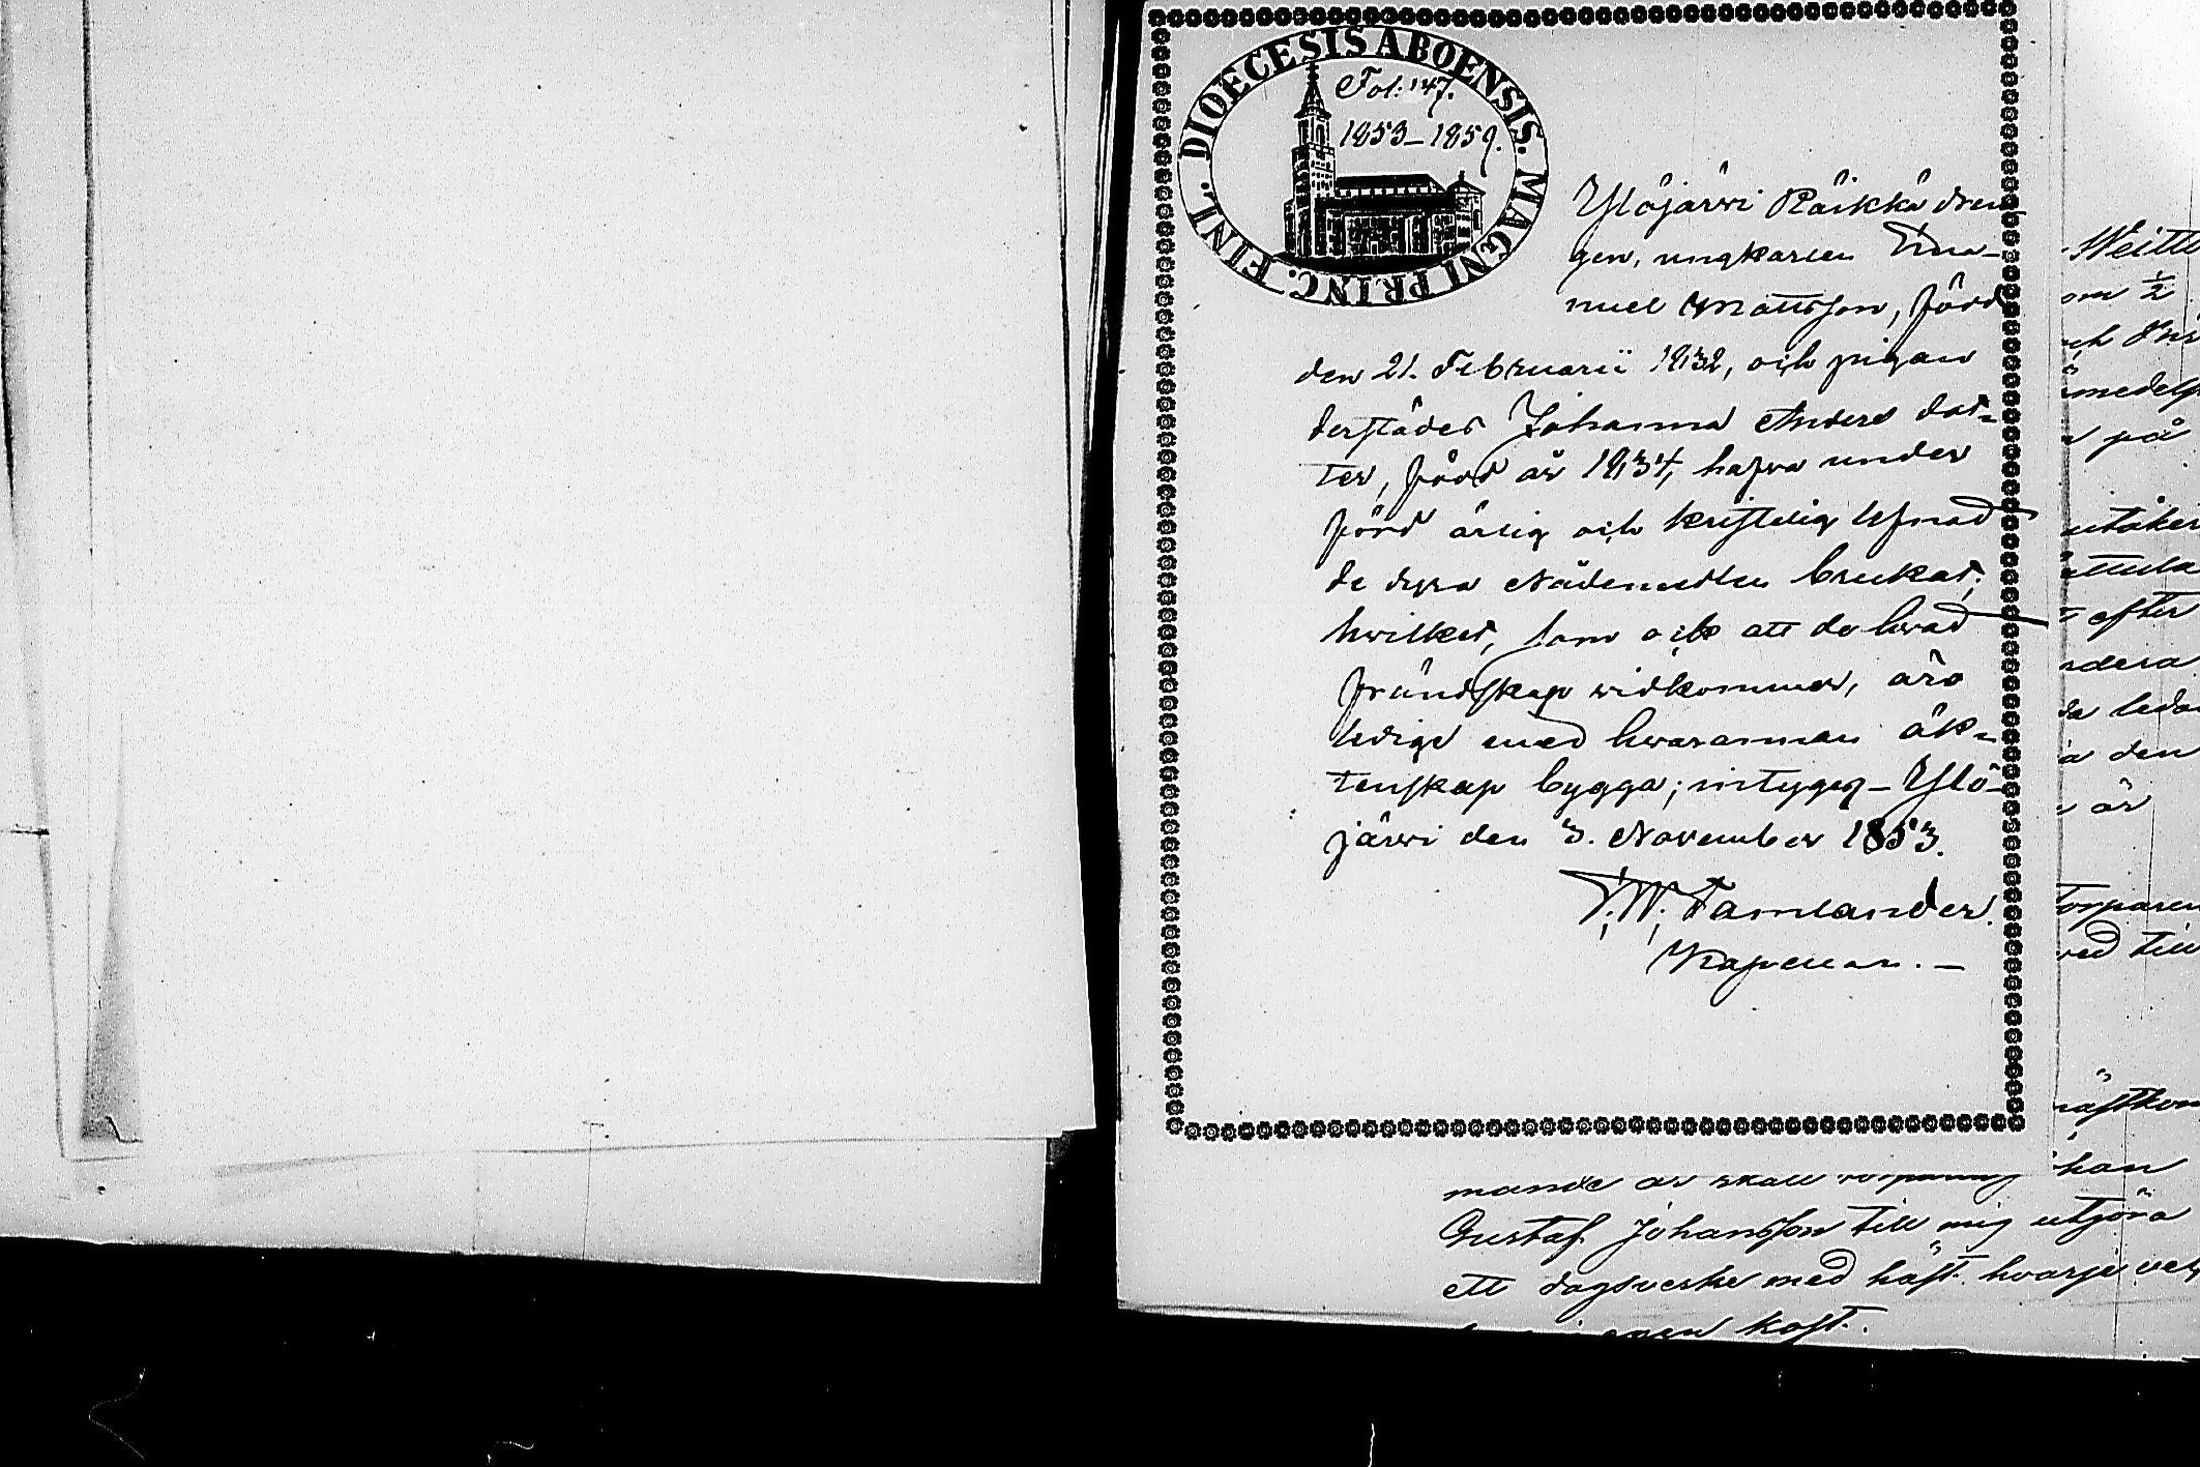 DIOECESIS ABOENSIS. MAGNI PRINC. FINL.
Fol: 147.
1853–1859.
Ylöjärvi Räikkä dren
gen, ungkarlen Ema-
nuel Mattsson, född
den 21. Februarii 1832, och pigan
derstädes Johanna Anders dot-
ter, född år 1834, hafva under
förd ärlig och kristelig lefnad
de dyra Nådemedlen brukat;
hvilket, som och att de hvad
frändskap vidkommer, äro
ledige med hvarannan äk-
tenskap bygga; intygas – Ylö-
järvi den 3. November 1853.
F. W. Tamlander.
Kapellan. –
Weitti
om ½
och
medelst
på
efter
den
år
Torparen
med till
nästkom
mande år skall torparen Johan
Gustaf Johansson till mig utgöra
ett dagsverke med häst hvarje vec
egen kost.